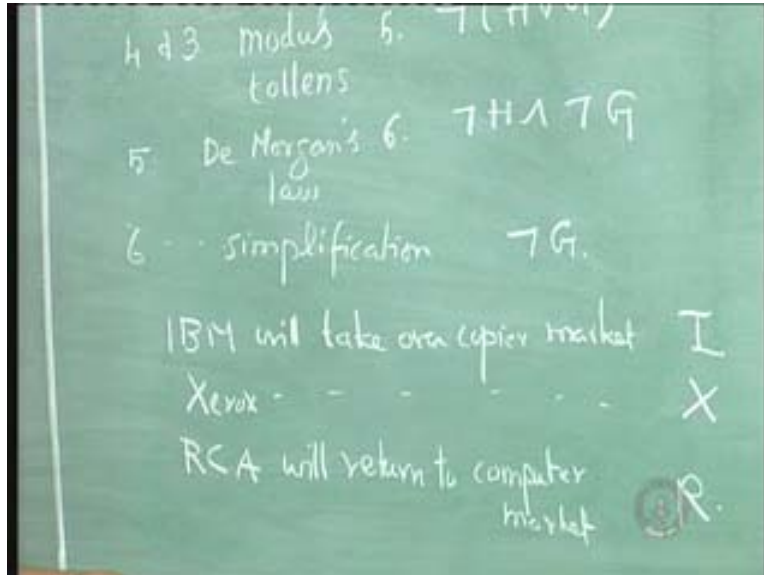 4 d 3 modus 5. ¬(H∨G)
tollens
5 De Morgan's 6. ¬H∧¬G
law
6 -- simplification ¬G.
IBM will take over copier market I
Xerox - - - - - - X
RCA will return to computer
market R.